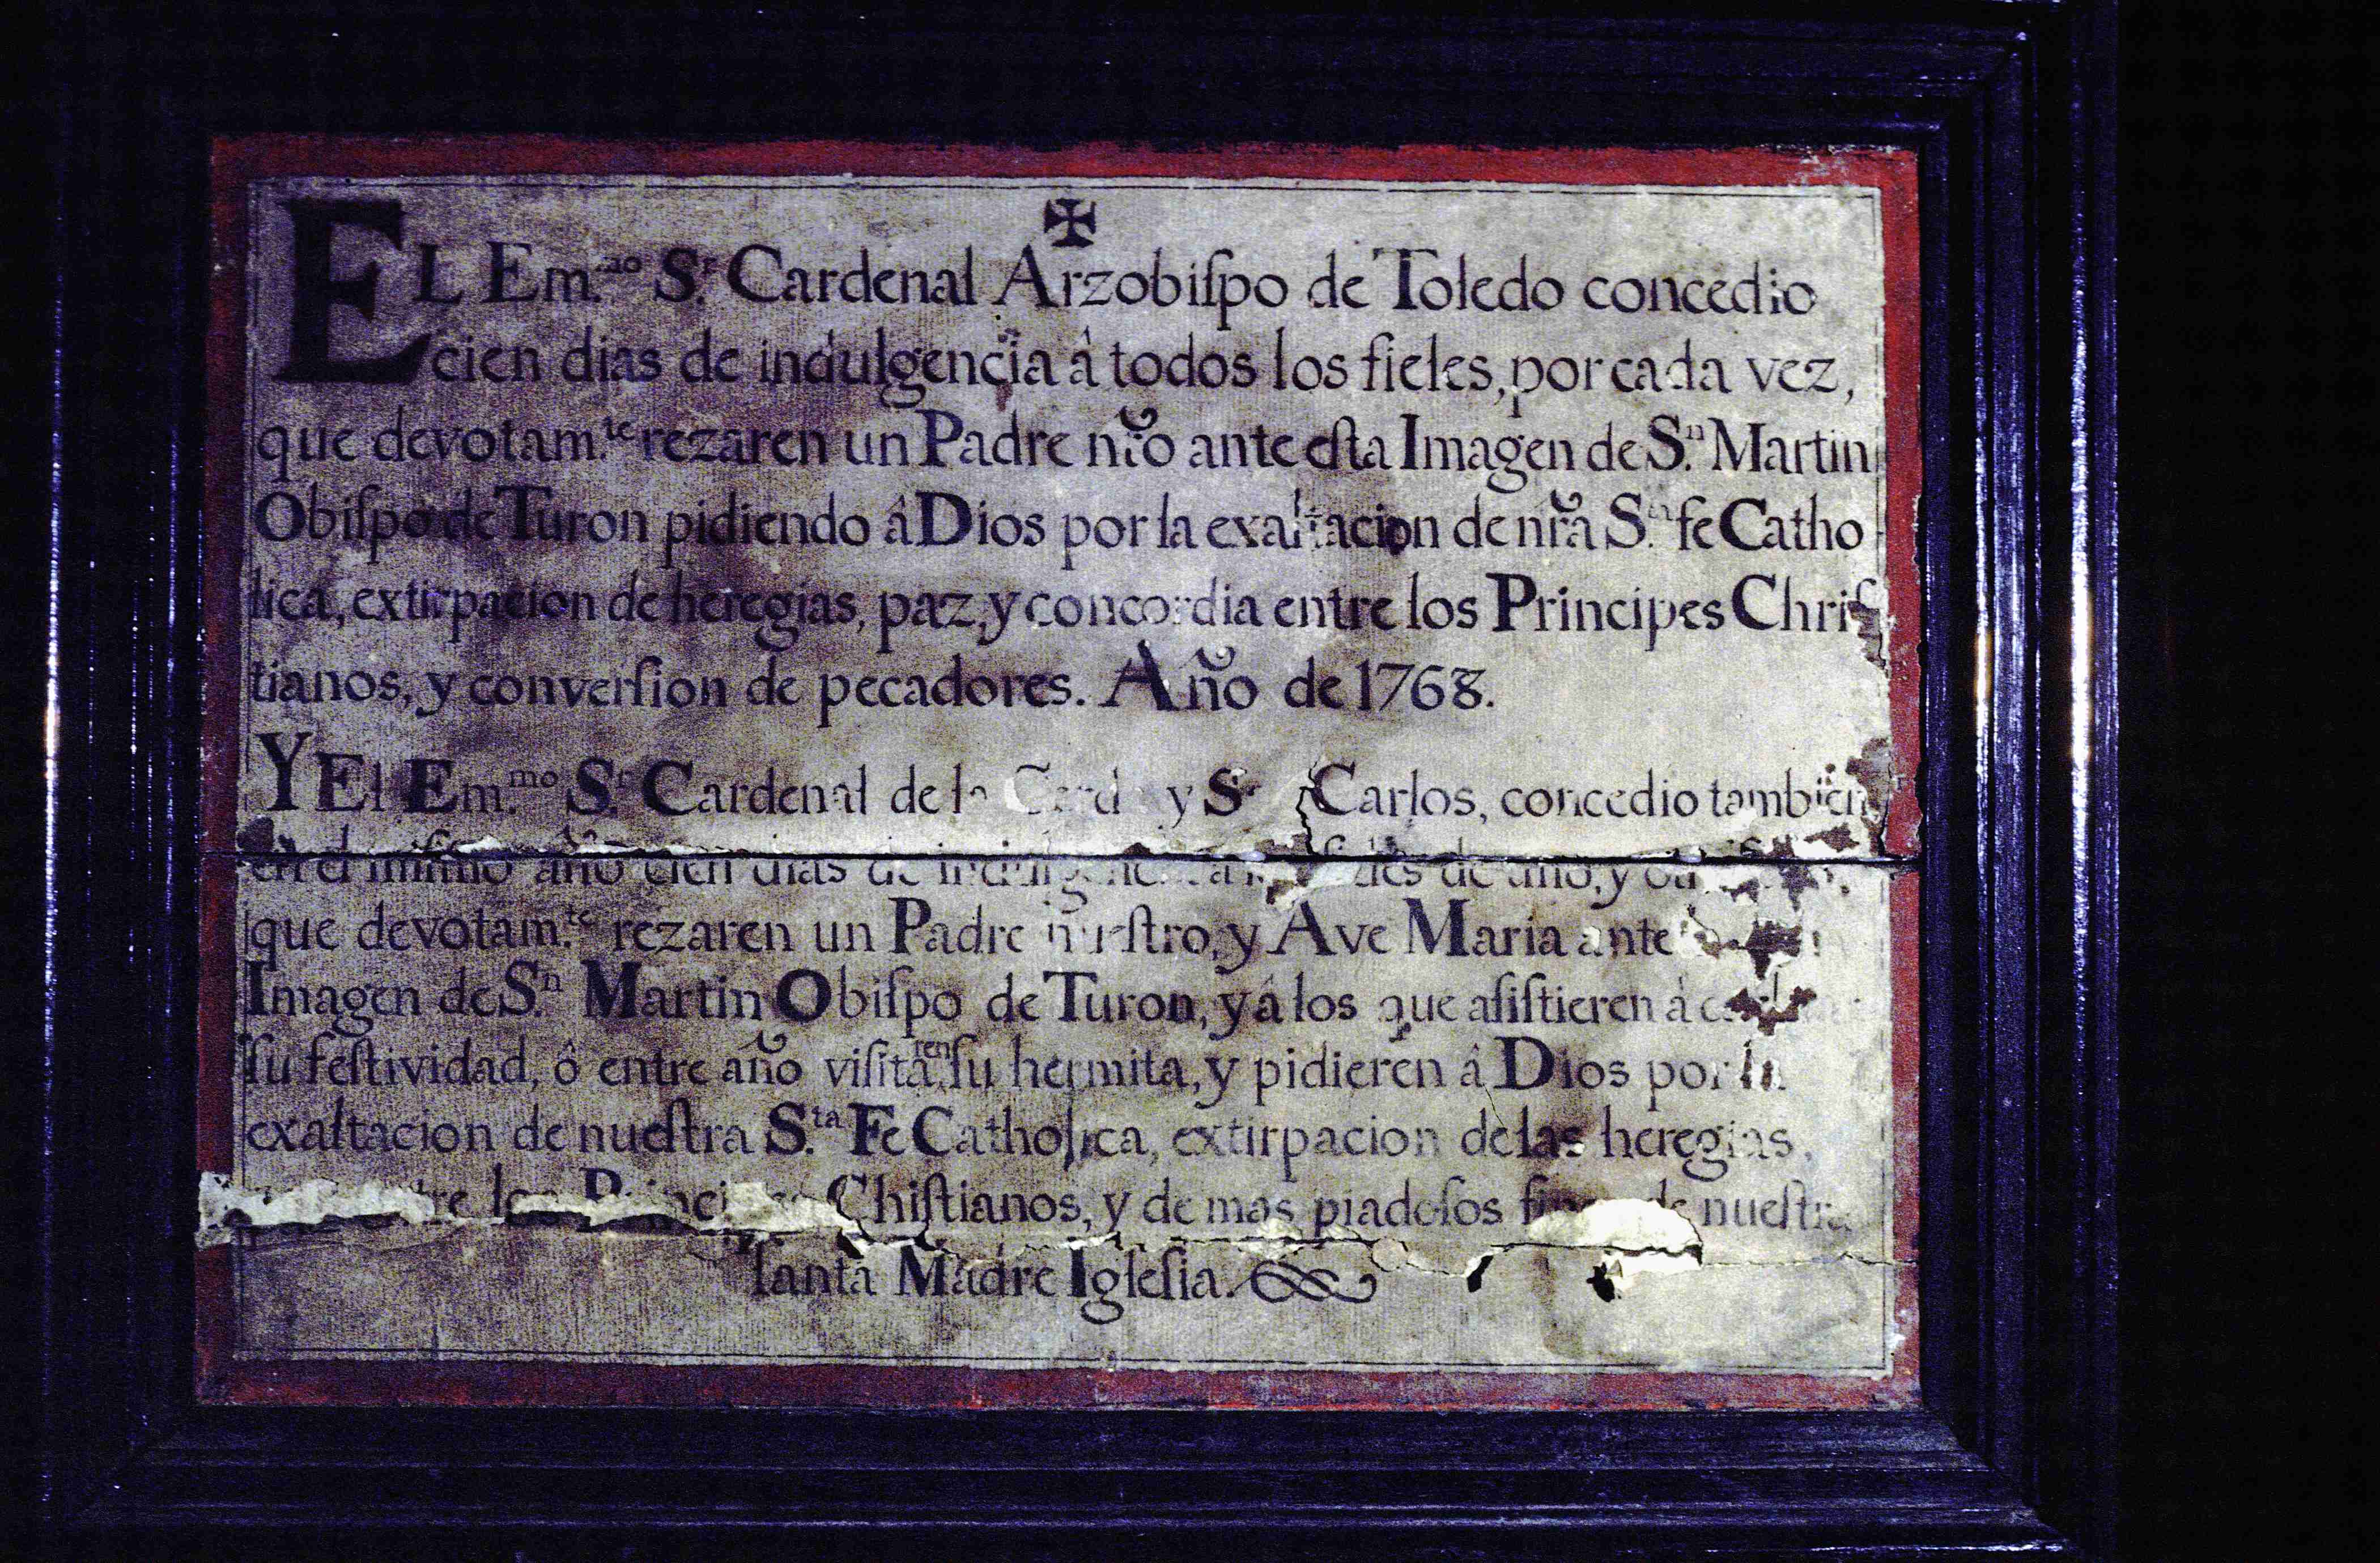 ✠
EL Em.mo S.r Cardenal Arzobiſpo de Toledo concedio
cien dias de indulgencia â todos los fieles, por cada vez,
que devotam.te rezaren un Padre nr̃o ante eſta Imagen de S.n Martin
Obiſpo de Turon pidiendo â Dios por la exaltacion de nr̃a S.ta fe Catho
lica, extirpacion de heregias, paz, y concordia entre los Principes Chriſ
tianos, y converſion de pecadores. Año de 1768.
Y El Em.mo S.r Cardenal de la Cerda y S.n Carlos, concedio tambien
en el miſmo año cien dias de indulgencia de uno, y
que devotam.te rezaren un Padre nueſtro, y Ave Maria ante
Imagen de S.n Martin Obiſpo de Turon, y â los que aſiſtieren â
ſu feſtividad, ô entre año viſitaren ſu hermita, y pidieren â Dios por la
exaltacion de nueſtra S.ta Fe Catholica, extirpacion de las heregias,
entre los Principes Chiſtianos, y de mas piadoſos fines de nueſtra
ſanta Madre Igleſia.